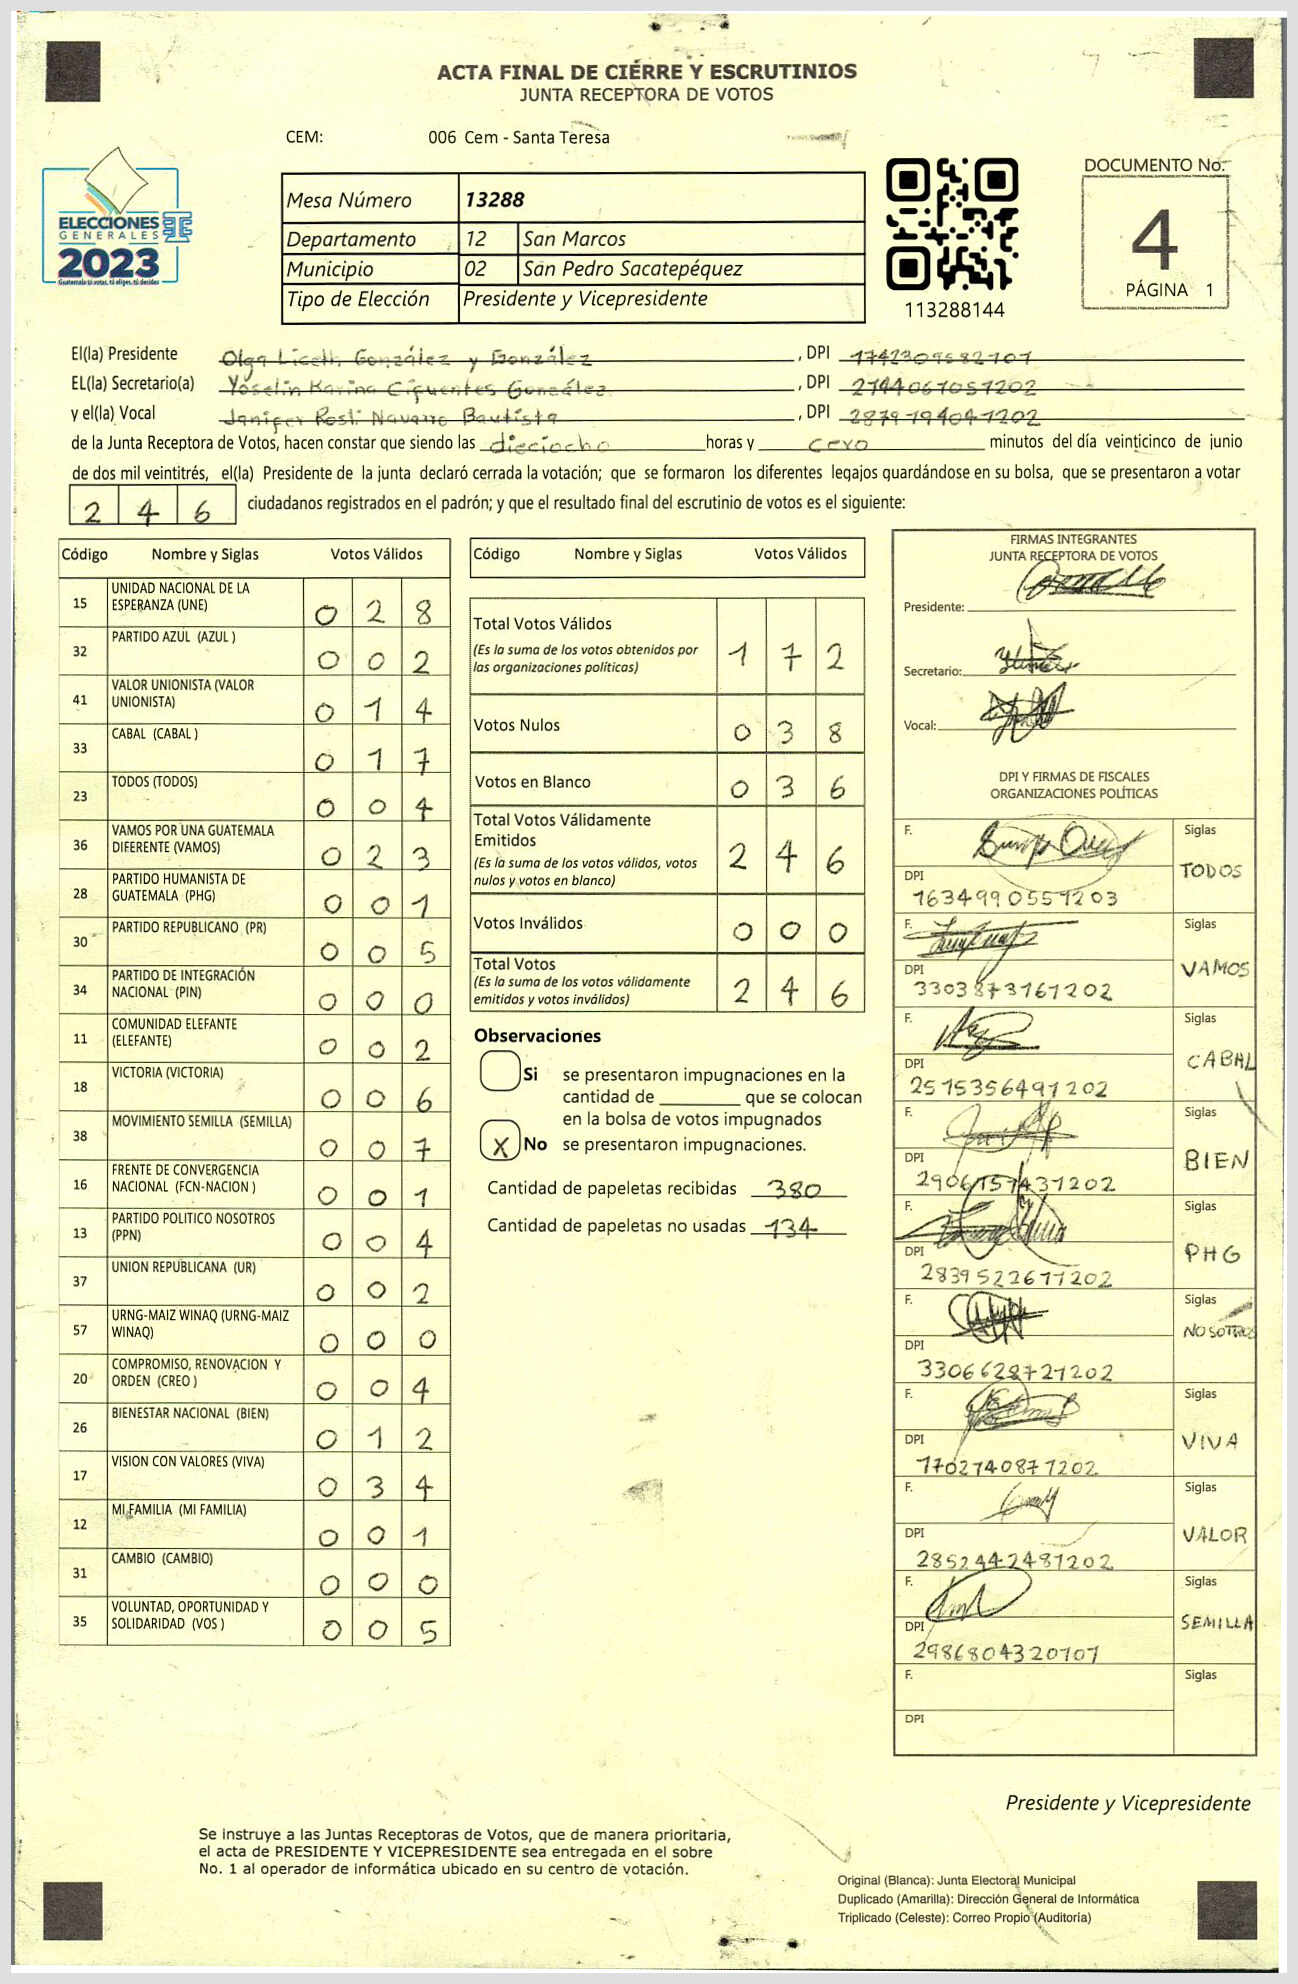 ACTA FINAL DE CIERRE Y ESCRUTINIOS
JUNTA RECEPTORA DE VOTOS
CEM: 006 Cem - Santa Teresa
ELECCIONES
GENERALES
2023
Guatemala tú votas, tú eliges, tú decides
Mesa Número 13288
Departamento 12 San Marcos
Municipio 02 San Pedro Sacatepéquez
Tipo de Elección Presidente y Vicepresidente
113288144
DOCUMENTO No.
4
PÁGINA 1
El(la) Presidente Olga Liceth González y González, DPI 1742309582707
EL(la) Secretario(a) Yoselin Karina Cifuentes González, DPI 2744067051202
y el(la) Vocal Navarro Bautista, DPI 2879794041202
de la Junta Receptora de Votos, hacen constar que siendo las dieciocho horas y cero minutos del día veinticinco de junio
de dos mil veintitrés, el(la) Presidente de la junta declaró cerrada la votación; que se formaron los diferentes legajos guardándose en su bolsa, que se presentaron a votar
2 4 6 ciudadanos registrados en el padrón; y que el resultado final del escrutinio de votos es el siguiente:
Código Nombre y Siglas Votos Válidos
15 UNIDAD NACIONAL DE LA ESPERANZA (UNE) 0 2 8
32 PARTIDO AZUL (AZUL ) 0 0 2
41 VALOR UNIONISTA (VALOR UNIONISTA) 0 1 4
33 CABAL (CABAL ) 0 1 7
23 TODOS (TODOS) 0 0 4
36 VAMOS POR UNA GUATEMALA DIFERENTE (VAMOS) 0 2 3
28 PARTIDO HUMANISTA DE GUATEMALA (PHG) 0 0 1
30 PARTIDO REPUBLICANO (PR) 0 0 5
34 PARTIDO DE INTEGRACIÓN NACIONAL (PIN) 0 0 0
11 COMUNIDAD ELEFANTE (ELEFANTE) 0 0 2
18 VICTORIA (VICTORIA) 0 0 6
38 MOVIMIENTO SEMILLA (SEMILLA) 0 0 7
16 FRENTE DE CONVERGENCIA NACIONAL (FCN-NACION ) 0 0 1
13 PARTIDO POLITICO NOSOTROS (PPN) 0 0 4
37 UNION REPUBLICANA (UR) 0 0 2
57 URNG-MAIZ WINAQ (URNG-MAIZ WINAQ) 0 0 0
20 COMPROMISO, RENOVACION Y ORDEN (CREO ) 0 0 4
26 BIENESTAR NACIONAL (BIEN) 0 1 2
17 VISION CON VALORES (VIVA) 0 3 4
12 MI FAMILIA (MI FAMILIA) 0 0 1
31 CAMBIO (CAMBIO) 0 0 0
35 VOLUNTAD, OPORTUNIDAD Y SOLIDARIDAD (VOS ) 0 0 5
Código Nombre y Siglas Votos Válidos
Total Votos Válidos 1 7 2
(Es la suma de los votos obtenidos por
las organizaciones políticas)
Votos Nulos 0 3 8
Votos en Blanco 0 3 6
Total Votos Válidamente
Emitidos 2 4 6
(Es la suma de los votos válidos, votos
nulos y votos en blanco)
Votos Inválidos 0 0 0
Total Votos 2 4 6
(Es la suma de los votos válidamente
emitidos y votos inválidos)
Observaciones
Si se presentaron impugnaciones en la
cantidad de ________ que se colocan
en la bolsa de votos impugnados
X No se presentaron impugnaciones.
Cantidad de papeletas recibidas 380
Cantidad de papeletas no usadas 134
FIRMAS INTEGRANTES
JUNTA RECEPTORA DE VOTOS
Presidente:
Secretario:
Vocal:
DPI Y FIRMAS DE FISCALES
ORGANIZACIONES POLÍTICAS
F. Siglas
TODOS
DPI
1634990551203
F. Siglas
VAMOS
DPI
3303873161202
F. Siglas
CABAL
DPI
2515356491202
F. Siglas
BIEN
DPI
2906157431202
F. Siglas
PHG
DPI
2839522671202
F. Siglas
NOSOTROS
DPI
3306628721202
F. Siglas
VIVA
DPI
1702740871202
F. Siglas
VALOR
DPI
2852442481202
F. Siglas
SEMILLA
DPI
2986804320707
F. Siglas
DPI
Presidente y Vicepresidente
Se instruye a las Juntas Receptoras de Votos, que de manera prioritaria,
el acta de PRESIDENTE Y VICEPRESIDENTE sea entregada en el sobre
No. 1 al operador de informática ubicado en su centro de votación.
Original (Blanca): Junta Electoral Municipal
Duplicado (Amarilla): Dirección General de Informática
Triplicado (Celeste): Correo Propio (Auditoría)